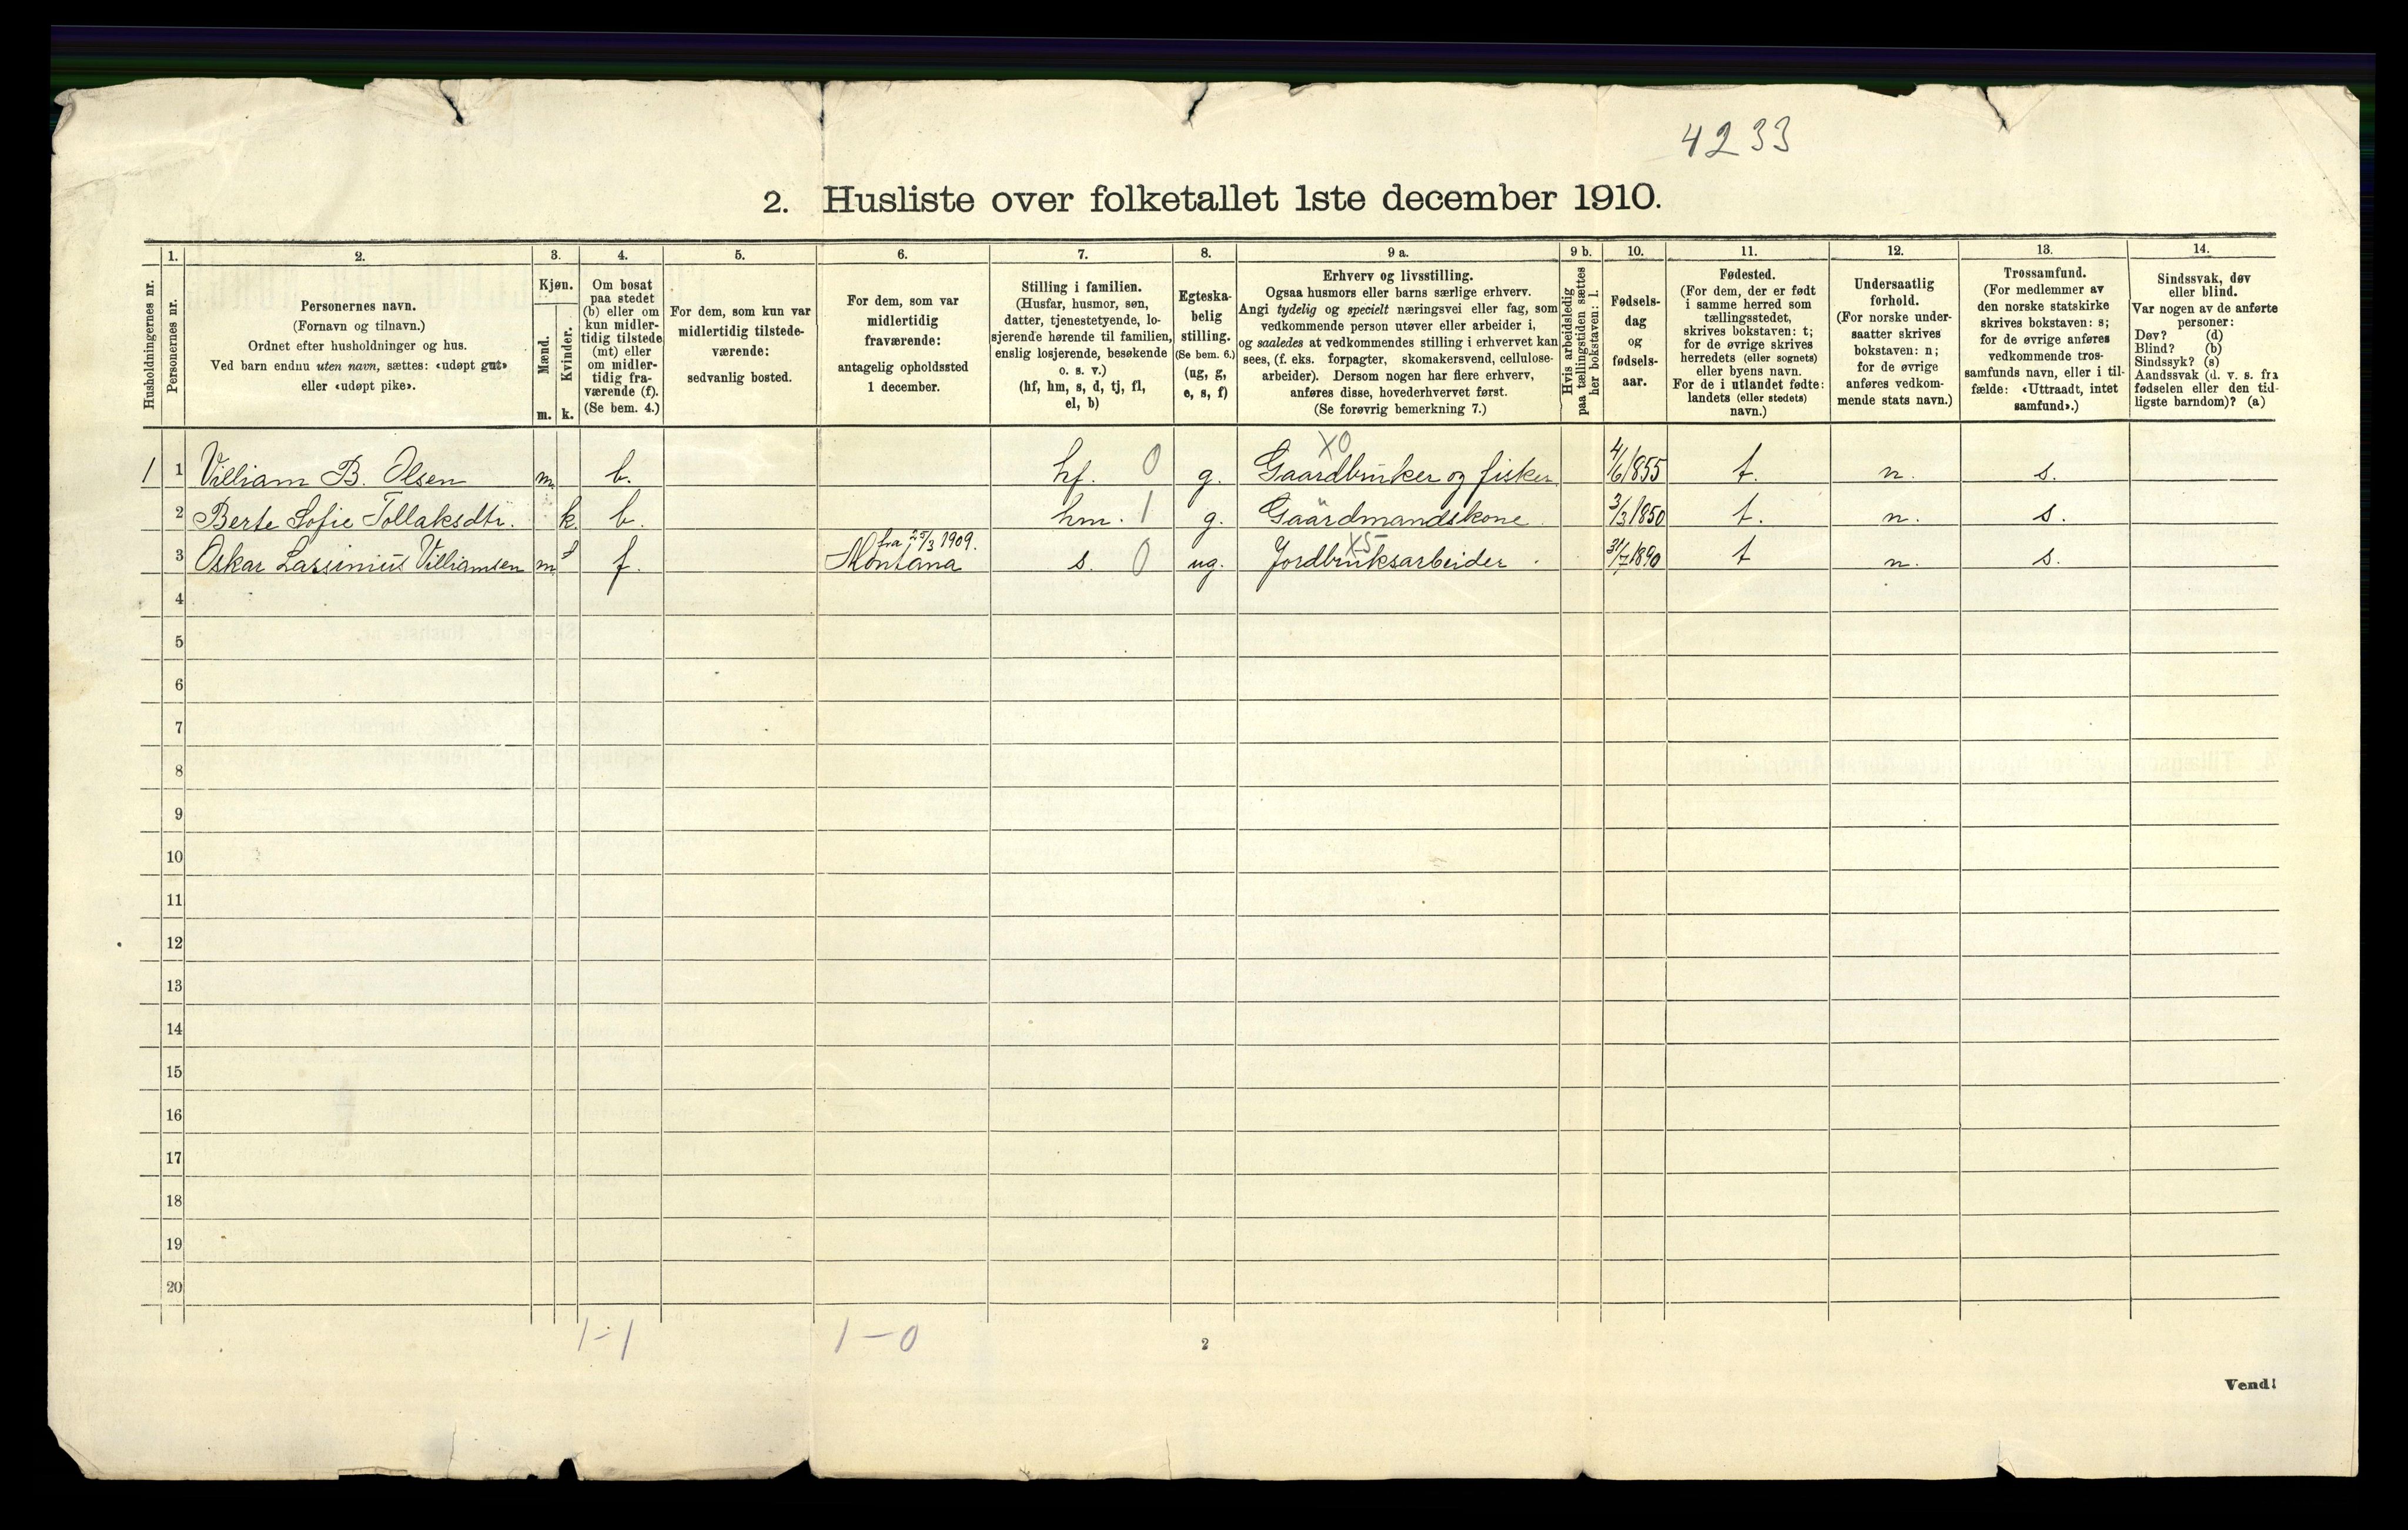 4233
2. Husliste over folketallet 1ste december 1910.
Husholdningernes nr.
1.
Personernes nr.
2.
Personernes navn.
(Fornavn og tilnavn.)
Ordnet efter husholdninger og hus.
Ved barn endnu uten navn, sættes: «udøpt gut»
eller «udøpt pike».
3.
Kjøn.
Mænd.
m.
Kvinder.
k.
4.
Om bosat
paa stedet
(b) eller om
kun midler-
tidig tilstede
(mt) eller
om midler-
tidig fra-
værende (f).
(Se bem. 4.)
5.
For dem, som kun var
midlertidig tilstede-
værende:
sedvanlig bosted.
6.
For dem, som var
midlertidig
fraværende:
antagelig opholdssted
1 december.
7.
Stilling i familien.
(Husfar, husmor, søn,
datter, tjenestetyende, lo-
sjerende hørende til familien,
enslig losjerende, besøkende
o. s. v.)
(hf, hm, s, d, tj, fl,
el, b)
8.
Egteska-
belig
stilling.
(Se bem. 6.)
(ug, g,
e, s, f)
9 a.
Erhverv og livsstilling.
Ogsaa husmors eller barns særlige erhverv.
Angi tydelig og specielt næringsvei eller fag, som
vedkommende person utøver eller arbeider i,
og saaledes at vedkommendes stilling i erhvervet kan
sees, (f. eks. forpagter, skomakersvend, cellulose-
arbeider). Dersom nogen har flere erhverv,
anføres disse, hovederhvervet først.
(Se forøvrig bemerkning 7.)
9 b.
Hvis arbeidsledig
paa tællingstiden sættes
her bokstaven: l.
10.
Fødsels-
dag
og
fødsels-
aar.
11.
Fødested.
(For dem, der er født
i samme herred som
tællingsstedet,
skrives bokstaven: t;
for de øvrige skrives
herredets (eller sognets)
eller byens navn.
For de i utlandet fødte:
landets (eller stedets)
navn.)
12.
Undersaatlig
forhold.
(For norske under-
saatter skrives
bokstaven: n;
for de øvrige
anføres vedkom-
mende stats navn.)
13.
Trossamfund.
(For medlemmer av
den norske statskirke
skrives bokstaven: s;
for de øvrige anføres
vedkommende tros-
samfunds navn, eller i til-
fælde: «Uttraadt, intet
samfund».)
14.
Sindssvak, døv
eller blind.
Var nogen av de anførte
personer:
Døv? (d)
Blind? (b)
Sindssyk? (s)
Aandssvak (d. v. s. fra
fødselen eller den tid-
ligste barndom)? (a)
X0
1 1 Villiam B. Olsen m. b. hf. 0 g. Gaardbruker og fisker 4/6 1855 t. n. s.
2 Berte Sofie Tollaksdtr. k. b. hm. 1 g. Gaardmandskone. 3/3 1850 t. n. s.
fra 25/3 1909. X5
3 Oskar Lassinius Villiamsen m f. Montana s. 0 ug. Jordbruksarbeider. 31/7 1890 t n. s.
4
5
6
7
8
9
10
11
12
13
14
15
16
17
18
19
20
1-1 1-0
2
Vend!